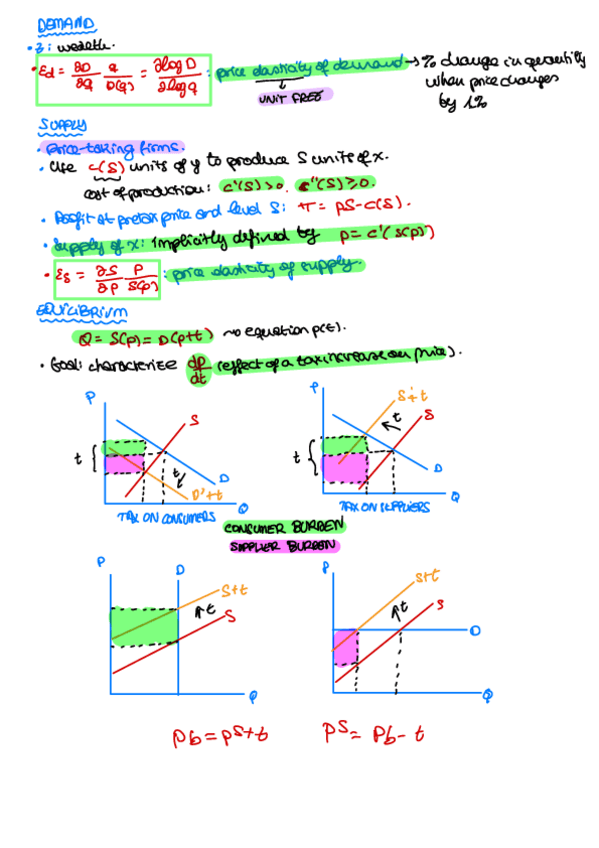 DEMAND
• z: wealth.
• εd = ∂D/∂q q/D(q) = ∂log D/∂log q : price elasticity of demand → % change in quantity
when price changes
by 1%
UNIT FREE
SUPPLY
• price-taking firms.
• Use c(S) units of y to produce S units of x.
cost of production: c'(S) > 0. c''(S) ≥ 0.
• Profit at pretax price and level S: π = pS - c(S).
• Supply of x: implicitly defined by p = c'(S(p))
• εs = ∂S/∂p p/S(p) : price elasticity of supply.
EQUILIBRIUM
Q = S(p) = D(p+t) ~ equation p(t).
• Goal: characterize dp/dt (effect of a tax increase on price).
P S t t D D'+t Q
TAX ON CONSUMERS
P S+t t S t D Q
TAX ON SUPPLIERS
CONSUMER BURDEN
SUPPLIER BURDEN
P D S+t t S Q
P S+t t S D Q
Pb = PS+t PS = Pb - t